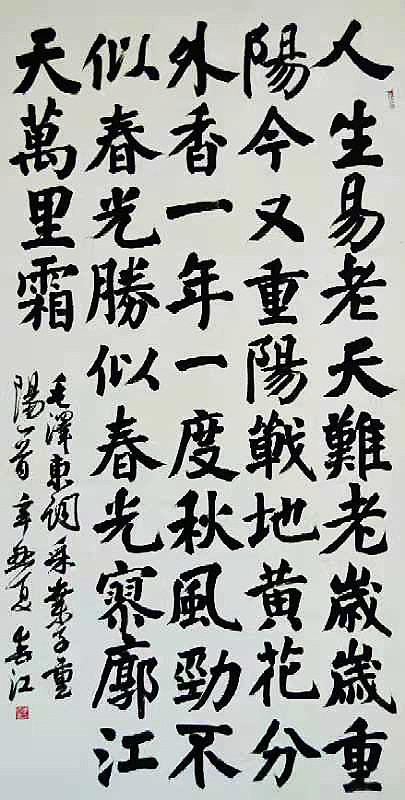 人生易老天難老歲歲重
陽今又重陽戰地黃花分
外香一年一度秋風勁不
似春光勝似春光寥廓江
天萬里霜
毛澤東詞采桑子重
陽一首辛丑夏江